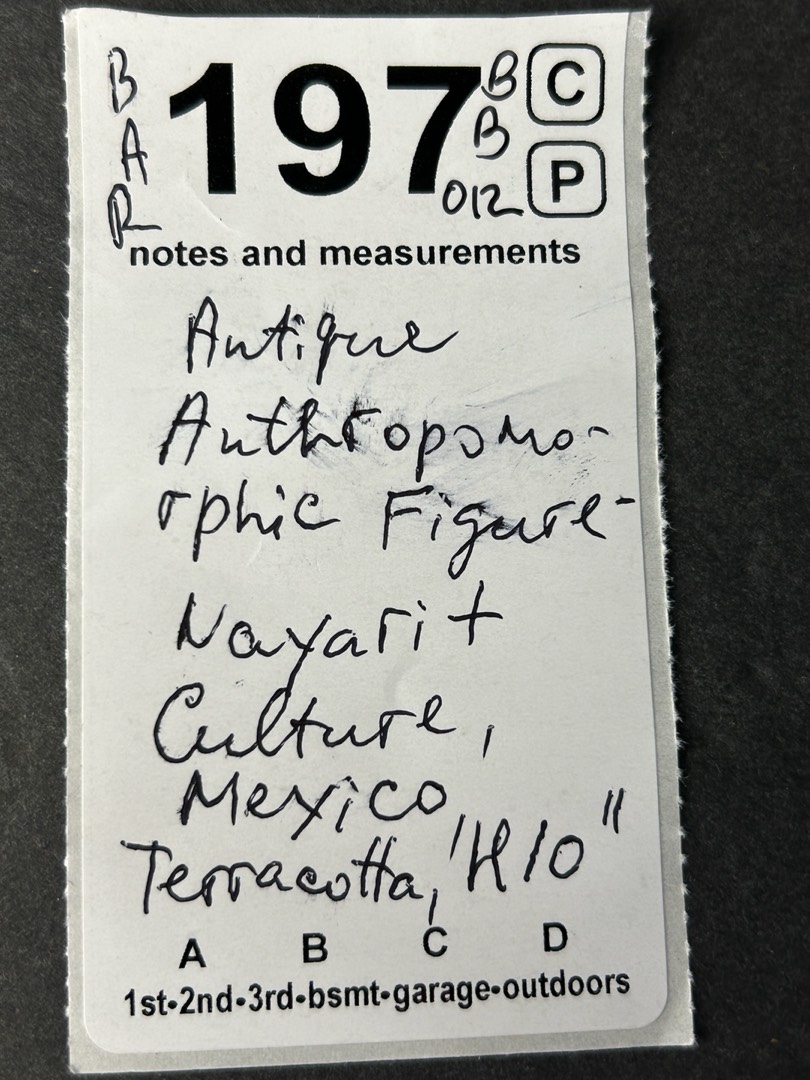 BAR
197
BB
012
C
P
notes and measurements
Antique
Anthropomo-
rphic Figure-
Nayarit
Culture,
Mexico,
Terracotta, H10"
A B C D
1st•2nd•3rd•bsmt•garage•outdoors